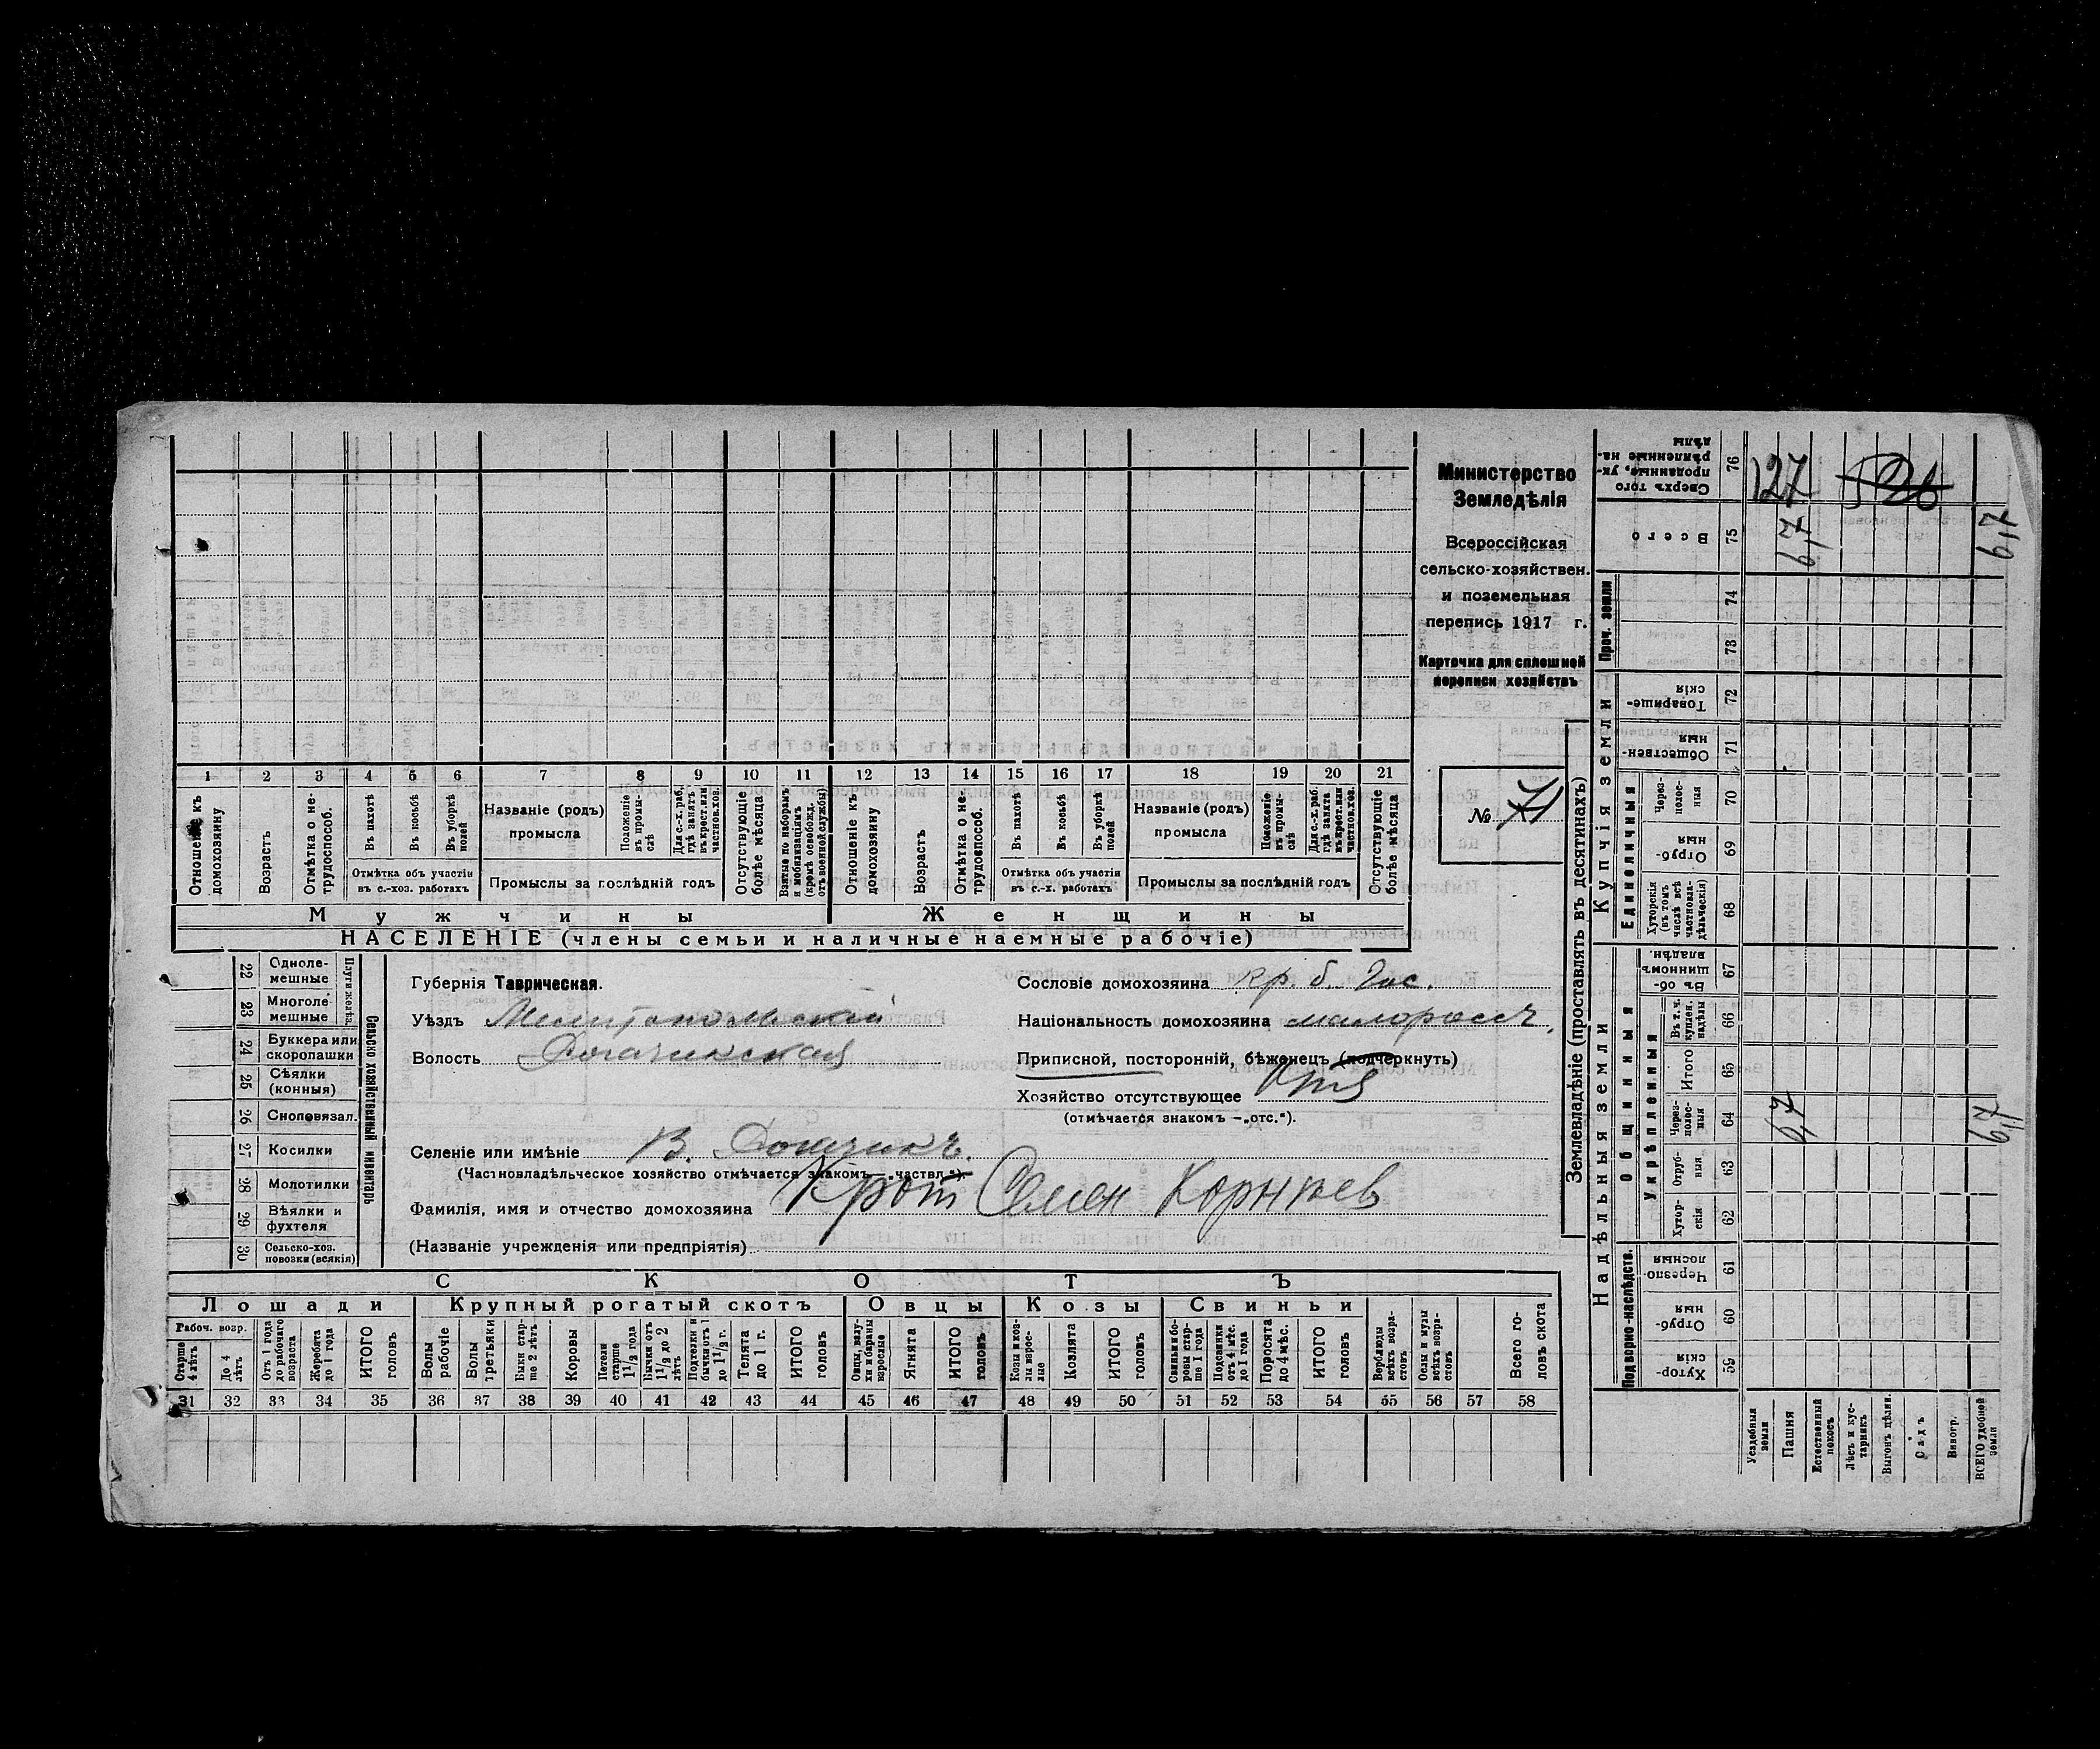 Министерство
Земледѣлія
Всероссійская
сельско-хозяйствен.
и поземельная
перепись 1917 г.
Карточка для сплошной
переписи хозяйствъ
№ 71
1 2 3 4 5 6 7 8 9 10 11 12 13 14 15 16 17 18 19 20 21
Отношеніе къ домохозяину
Возрастъ
Отмѣтка о не-трудоспособ.
Въ пахотѣ
Въ косьбѣ
Въ уборкѣ полей
Отмѣтка объ участіи въ с.-хоз. работахъ
Названіе (родъ) промысла
Положеніе въ промы-слѣ
Для с.-х. раб. гдѣ занятъ въ крест. или частнов. хоз.
Промыслы за послѣдній годъ
Отсутствующіе болѣе мѣсяца
Взятые по наборамъ и мобилизаціямъ (кромѣ освобожд. отъ военной службы)
Отношеніе къ домохозяину
Возрастъ
Отмѣтка о не-трудоспособ.
Въ пахотѣ
Въ косьбѣ
Въ уборкѣ полей
Отмѣтка объ участіи въ с.-х. работахъ
Названіе (родъ) промысла
Положеніе въ промы-слѣ
Для с.-х. раб. гдѣ занята въ крест. или частнов. хоз.
Промыслы за послѣдній годъ
Отсутствующіе болѣе мѣсяца
Мужчины Женщины
НАСЕЛЕНІЕ (члены семьи и наличные наемные рабочіе)
Сельско хозяйственный инвентарь
Плуги желѣз.
22 Одноле-мешные
23 Многоле-мешные
24 Буккера или скоропашки
25 Сѣялки (конныя)
26 Сноповязал.
27 Косилки
28 Молотилки
29 Вѣялки и фухтеля
30 Сельско-хоз. повозки (всякія)
Губернія Таврическая.
Уѣздъ Мелитопольскій
Волость
Сословіе домохозяина кр. б. Гос.
Національность домохозяина малороссъ.
Приписной, посторонній, бѣженецъ (подчеркнуть)
Хозяйство отсутствующее
(отмѣчается знакомъ —„отс.“).
Селеніе или имѣніе В.
(Частновладѣльческое хозяйство отмѣчается знакомъ „частвл.“).
Фамилія, имя и отчество домохозяина Крот Семен Корнѣев
(Названіе учрежденія или предпріятія)
СКОТЪ
Лошади Крупный рогатый скотъ Овцы Козы Свиньи
Рабоч. возр.
Старше 4 лѣтъ
До 4 лѣтъ
Отъ 1 года до рабочаго возраста
Жеребята до 1 года
ИТОГО головъ
Волы рабочіе
Волы третьяки
Быки стар-ше 2 лѣтъ
Коровы
Нетели старше 1 1/2 года
Бычки отъ 1 1/2 до 2 лѣтъ
Подтелки и бычки отъ 1 до 1 1/2 г.
Телята до 1 г.
ИТОГО головъ
Овцы, валу-хи и бараны взрослые
Ягнята
ИТОГО головъ
Козы и коз-лы взрос-лые
Козлята
ИТОГО головъ
Свиньи и бо-ровы стар-ше 1 года
Подсвинки отъ 4 мѣс. до 1 года
Поросята до 4 мѣс.
ИТОГО головъ
Верблюды всѣхъ возра-стовъ
Ослы и мулы всѣхъ возра-стовъ
Всего го-ловъ скота
31 32 33 34 35 36 37 38 39 40 41 42 43 44 45 46 47 48 49 50 51 52 53 54 55 56 57 58
Землевладѣніе (проставлять въ десятинахъ)
Купчія земли
Надѣльныя земли
Единоличныя
Общинныя
Укрѣпленныя
Подворно-наслѣдств.
Проч. земли
76 Сверхъ того проданные, ук-рѣпленные на-дѣлы 127
75 Всего 6,7 6,7
74
73
72 Товарище-скія
71 Обществен-ныя
70 Через-полос-ныя
69 Отруб-ныя
68 Хуторскія (въ томъ числѣ всѣ частновла-дѣльческія)
67 Въ об-щинномъ владѣн.
66 Въ т. ч. куплен. надѣлы
65 Итого
64 Через-полос-ныя 6,7 6,7
63 Отруб-ныя
62 Хутор-скія
61 Черезпо-лосныя
60 Отруб-ныя
59 Хутор-скія
Усадебныя земли
Пашня
Естественный покосъ
Лѣсъ и кус-тарникъ
Выгонъ цѣлин.
Садъ
Виногр.
ВСЕГО удобной земли